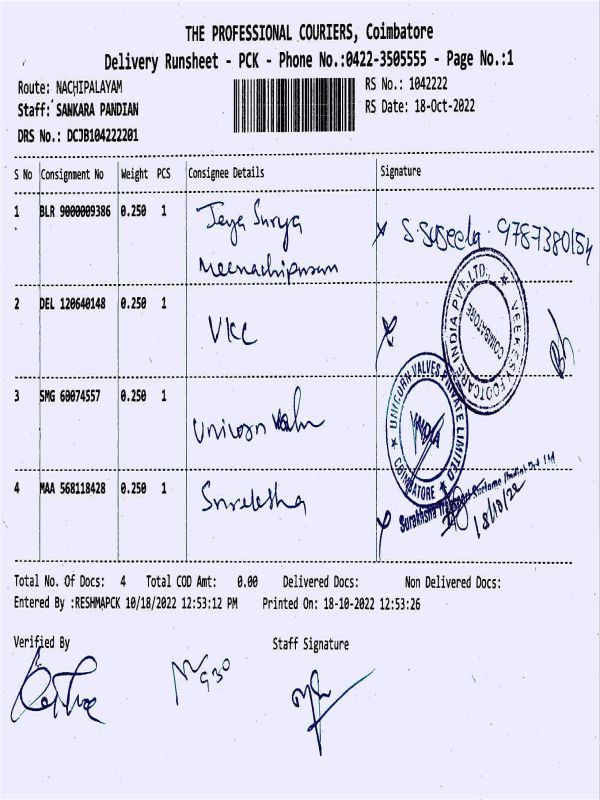 THE PROFESSIONAL COURIERS, Coimbatore
Delivery Runsheet - PCK - Phone No.:0422-3505555 - Page No.:1
Route: NACHIPALAYAM
RS No.: 1042222
Staff: SANKARA PANDIAN
RS Date: 18-Oct-2022
DRS No.: DCJB104222201
S No Consignment No Weight PCS Consignee Details Signature
1 BLR 9000009386 0.250 1 Jeya Surya
Meenachipuram
S. Suseela. 9787380154
2 DEL 120640148 0.250 1 VKC
VEEKESY FOOTCARE INDIA PVT. LTD.,
COIMBATORE
3 SMG 60074557 0.250 1 Unicorn Valve
UNICORN VALVES PRIVATE LIMITED
INDIA
COIMBATORE
4 MAA 568118428 0.250 1
Surakshaa Transport Systems (India) Pvt Ltd
18/10/22
Total No. Of Docs: 4 Total COD Amt: 0.00 Delivered Docs: Non Delivered Docs:
Entered By :RESHMAPCK 10/18/2022 12:53:12 PM Printed On: 18-10-2022 12:53:26
Verified By
Staff Signature
930